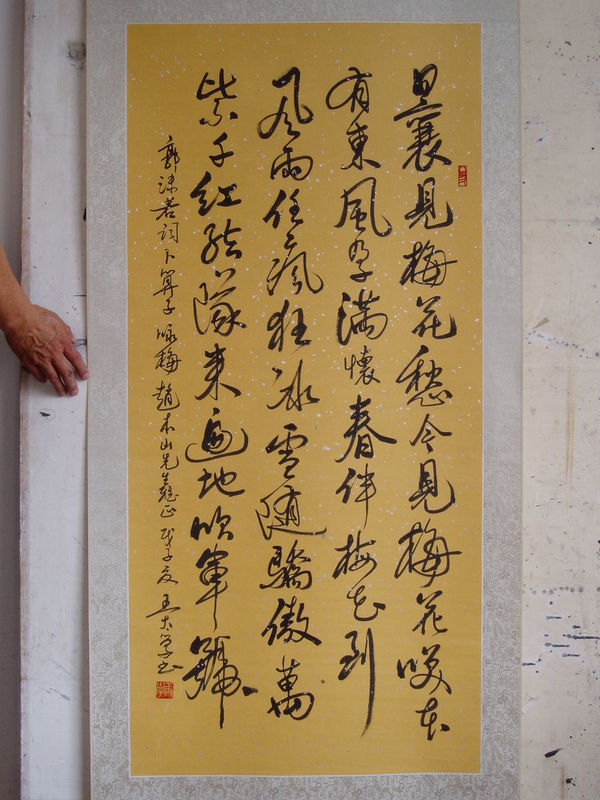 曩見梅花愁今見梅花咲本
有東風孕滿懷春伴梅花到
風雨任瘋狂冰雪隨驕傲萬
紫千紅結隊來遍地吹軍號
郭沫若詞卜算子咏梅 趙木山先生雅正 戊子夏 王大學書